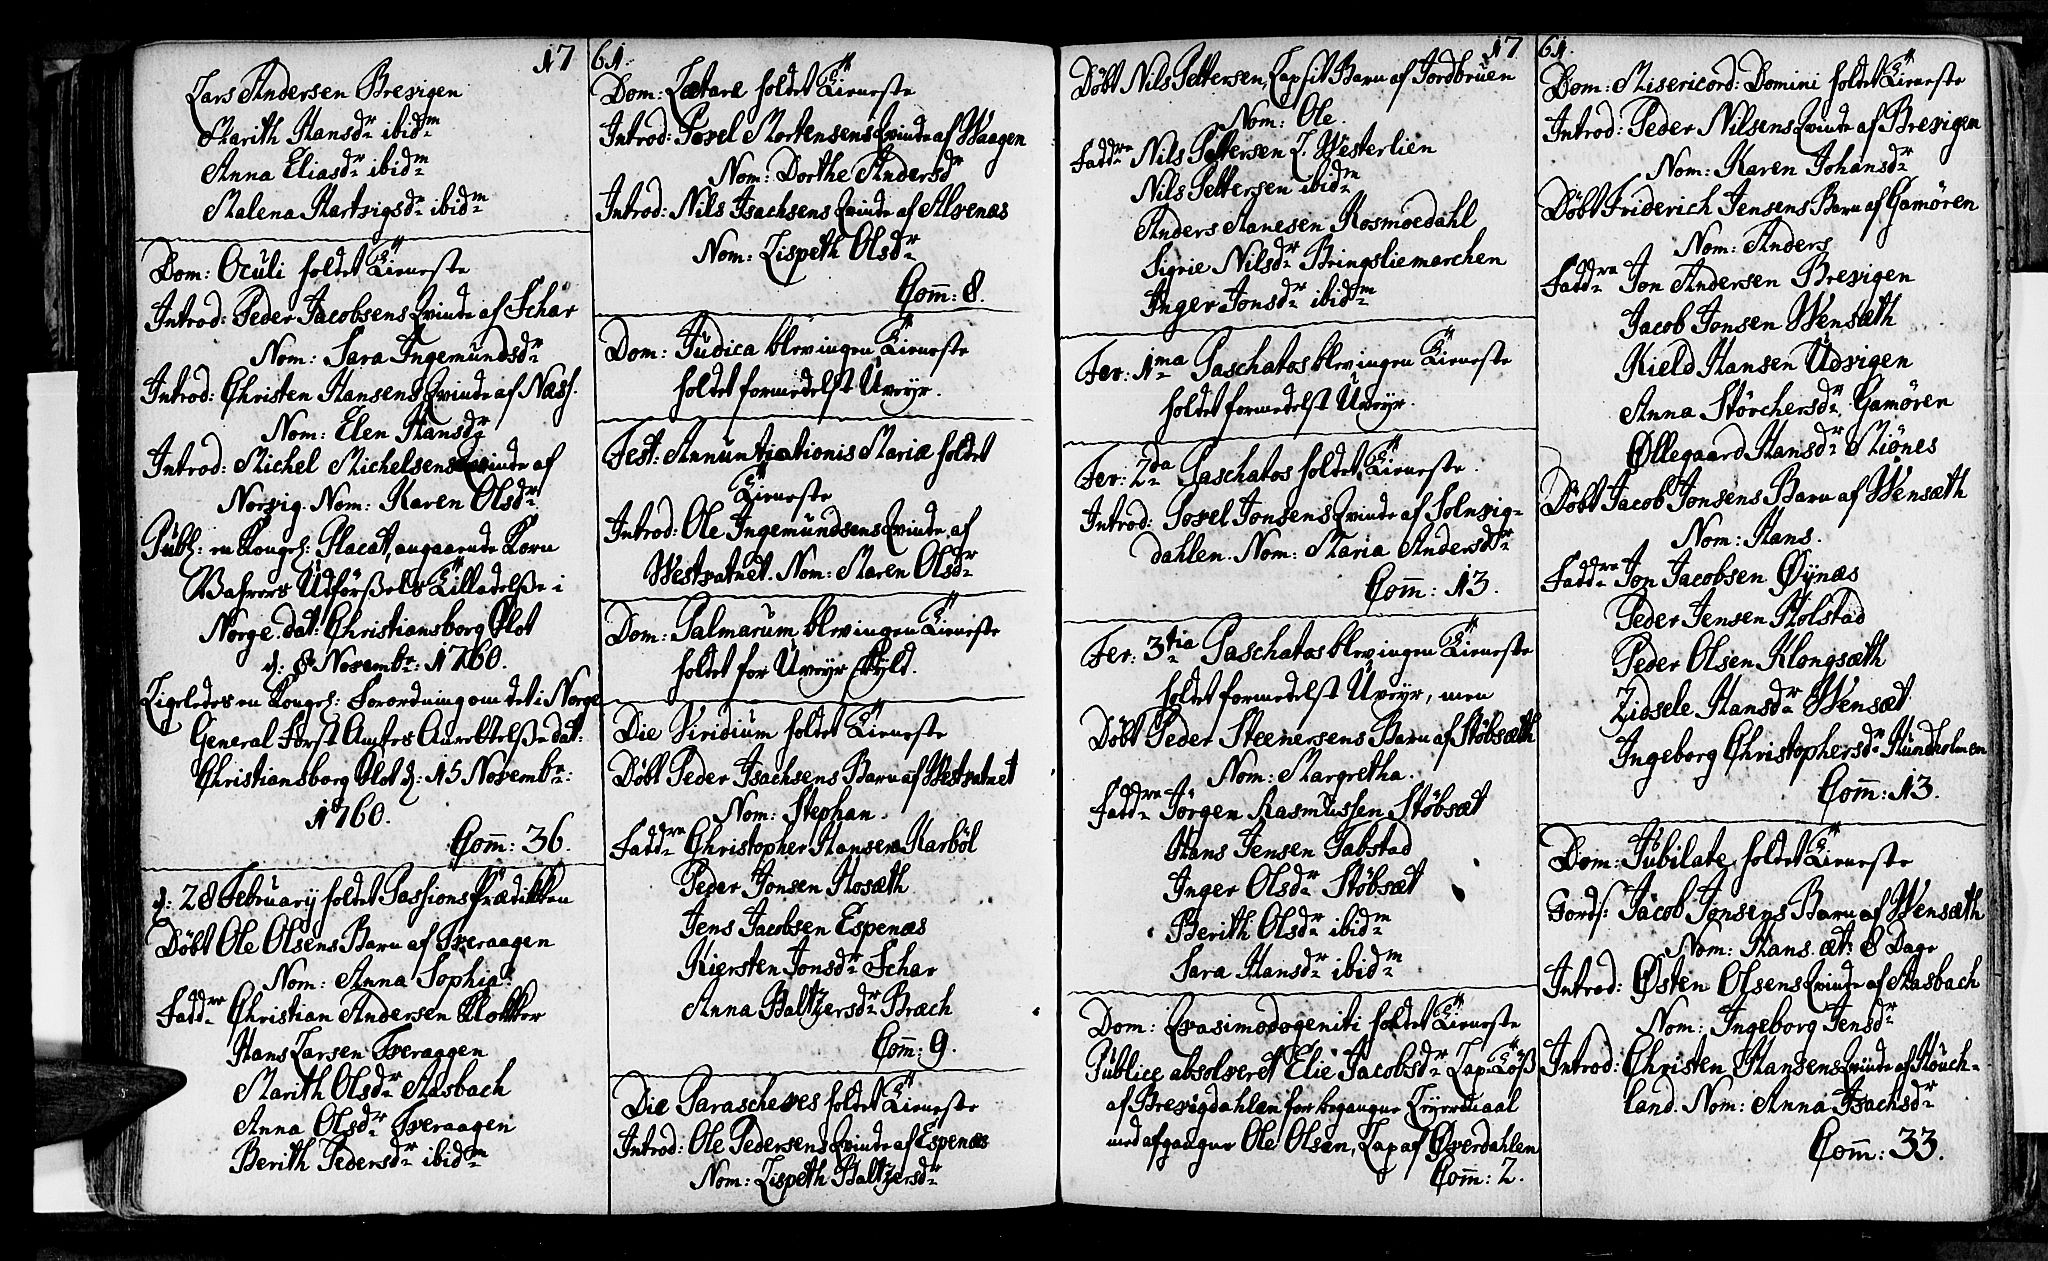 17 61.
Lars Andersen Brevigen
Marith Hansdr ibidm
Anna Eliasdr ibidm
Malena Hartvigsdr ibidm
Dom: Oculi holdet Tieneste
Introd: Peder Jacobsens Qvinde af Schar
Nom: Sara Ingemundsdr
Introd: Christen Hansens Qvinde af Næss.
Nom: Elen Hansdr
Introd: Michel Michelsens Qvinde af
Norvig. Nom: Karen Olsdr
Publ: en Kongel: Placat, angaaende Korn
Vahrers Udförssels Tilladelsse i
Norge. dat: Christiansborg Slot
d: 8 Novembr: 1760.
Ligeledes en Kongel: Forordning om det i Norge
General Forst Amtes Anrettelsse dat:
Christiansborg Slot d: 15 Novembr:
1760.
Com̄: 36.
d: 28 February holdet Passions Prædikken
Döbt Ole Olsens Barn af Tveraagen
Nom: Anna Sophia.
Faddre Christian Andersen Klokker
Hans Larsen Tveraagen
Marith Olsdr Aasbach
Anna Olsdr Tveraagen
Berith Pedersdr ibidm
Dom: Lætare holdet Tieneste
Introd: Povel Mortensens Qvinde af Waagen
Nom: Dorthe Andersdr
Introd: Nils Isachsens Qvinde af Alvenæs
Nom: Lispeth Olsdr
Com̄: 8.
Dom: Judica blev ingen Tieneste
holdet formedelst Uveyr.
Fest: Annuntiationis Mariæ holdet
Tieneste
Introd: Ole Ingemundsens Qvinde af
Westvatnet. Nom: Maren Olsdr
Dom: Palmarum blev ingen Tieneste
holdet for Uveyr skyld.
Die Viridium holdet Tieneste
Döbt Peder Isachsens Barn af Westvatnet
Nom: Stephan.
Faddre Christopher Hansen Karböl
Peder Jonsen Hosæth
Jens Jacobsen Espenæs
Kiersten Jonsdr Schar
Anna Baltzersdr Bræch
Com̄: 9.
Die Parasceves holdet Tieneste
Introd: Ole Pedersens Qvinde af Espenæs
Nom: Lispeth Baltzersdr
17 61.
Döbt Nils Pettersen, Lapfit Barn af Jordbruen
Nom: Ole.
Faddre Nils Pettersen L. Westerlien
Nils Pettersen ibidm
Anders Aanesen Kosmoedahl
Sigrie Nilsdr Bringsliemarchen
Inger Jonsdr ibidm
Fer: 1ma Paschatos blev ingen Tieneste
holdet formedelst Uveyr.
Fer: 2da Paschatos holdet Tieneste.
Introd: Povel Jonsens Qvinde af Solvvig-
dahlen. Nom: Maria Andersdr
Com̄: 13.
Fer: 3tia Paschatos blev ingen Tieneste
holdet formedelst Uveyr, men
Döbt Peder Steenersens Barn af Stöbsæth
Nom: Margretha.
Faddre Jörgen Rasmussen Stöbsæt
Hans Jensen Tabstad
Inger Olsdr Stöbsæt
Berith Olsdr ibidm
Sara Hansdr ibidm
Dom: Qvasimodogeniti holdet Tieneste
Publice absolveret Elie Jacobsdr Lap Töss
af Brevigdahlen for begangne Leyermaal
med afgangne Ole Olsen, Lap af Overdahlen
Com̄: 2.
Dom: Misericord: Domini holdet Tieneste
Introd: Peder Nilsens Qvinde af Brevigen
Nom: Karen Johansdr
Döbt Friderich Jensens Barn af Gamören
Nom: Anders
Faddre Jon Andersen Brevigen
Jacob Jonsen Wensæth
Kield Hansen Udvigen
Anna Störchersdr Gamören
Øllegaard Hansdr Miönes
Döbt Jacob Jonsens Barn af Wensæth
Nom: Hans.
Faddre Jon Jacobsen Øynæs
Peder Jensen Holstad
Peder Olsen Klongsæth
Zidsele Hansdr Wensæt
Ingeborg Christophersdr Hundholmen
Com̄: 13.
Dom: Jubilate, holdet Tieneste
Jords: Jacob Jonsens Barn af Wensæth
Nom: Hans. æt: 8 Dage
Introd: Østen Olsens Qvinde af Aasbach
Nom: Ingeborg Jensdr
Introd: Christen Hansens Qvinde af Houch-
land. Nom: Anna Isachsdr
Com̄: 33.